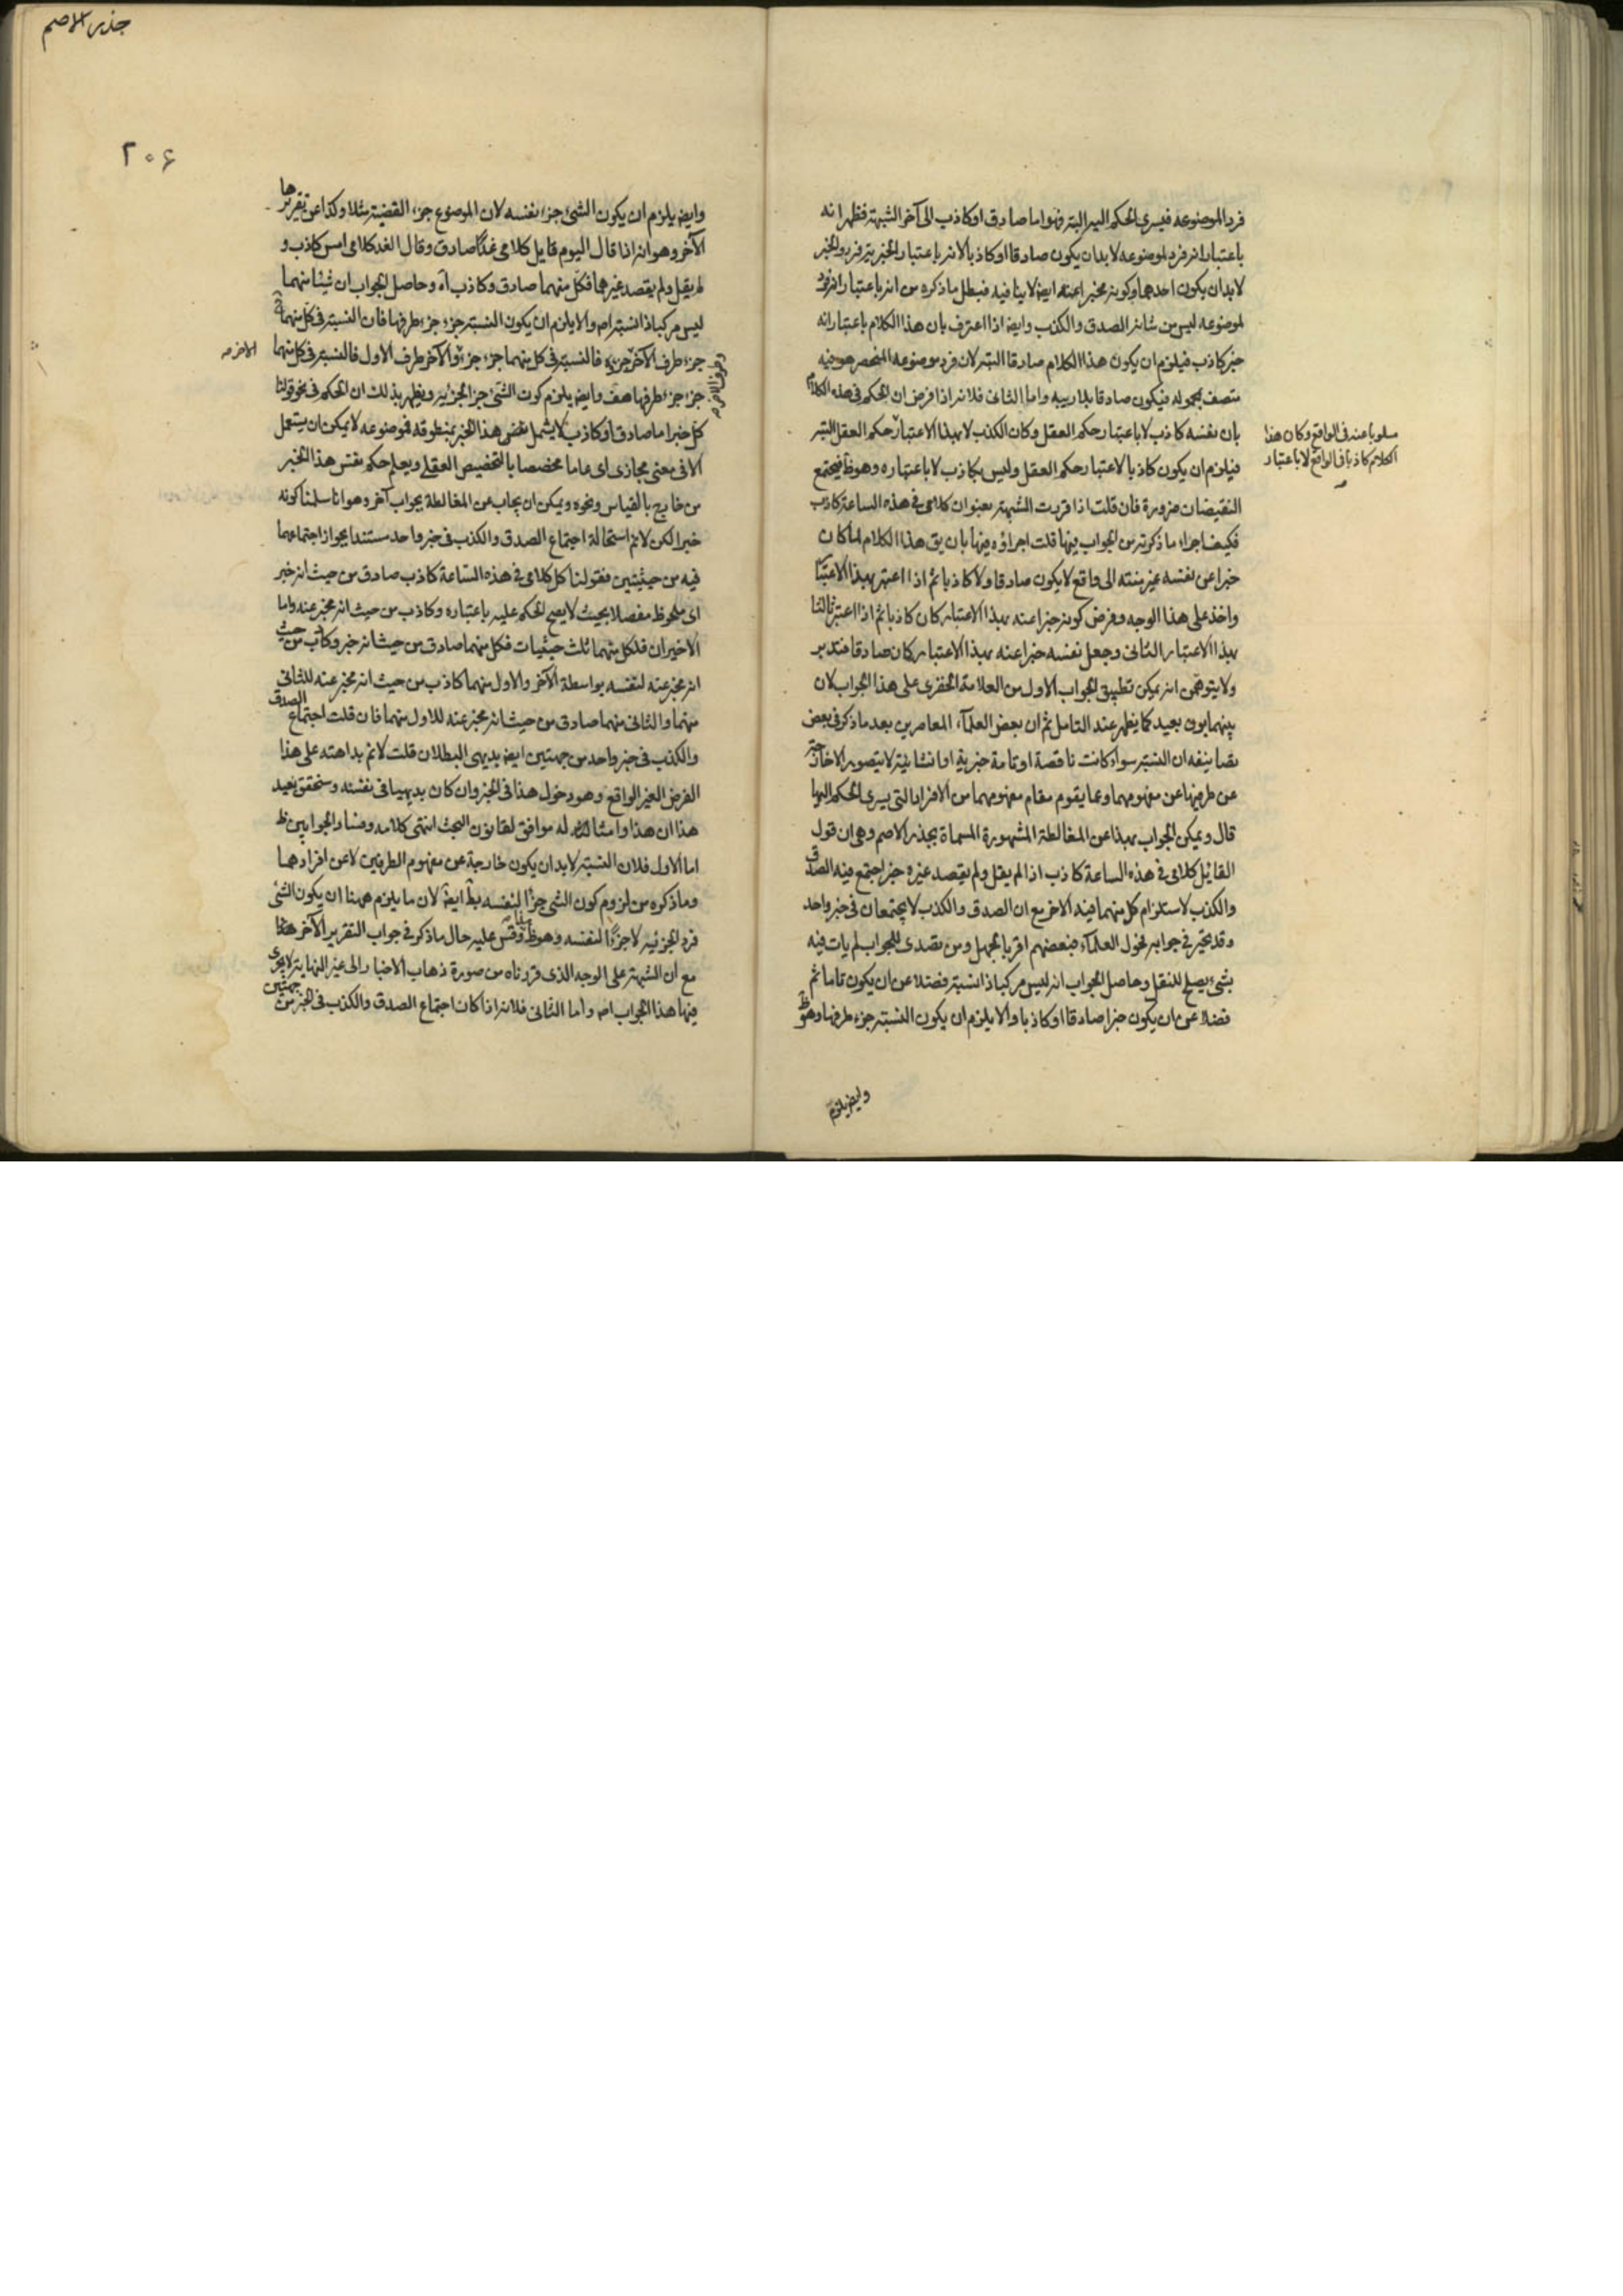 فرد الموضوعه فيسرى الحكم اليه البته فهو اما صادق او كاذب الى آخر الشبهة فظهر انه
باعتبار انه فرد لموضوعه لا بد ان يكون صادقا او كاذبا لانه باعتبار الخبرية فرد والخبر
لا بد ان يكون احدهما وكونه مخبرا عنه ايضا لا ينافيه فبطل ما ذكره من انه باعتبار انه فرد
لموضوعه ليس من شانه الصدق والكذب وايضا اذا اعترف بان هذا الكلام باعتبار انه
خبر كاذب فيلزم ان يكون هذا الكلام صادقا البته لان فرد موضوعه المنحصر هو فيه
متصف بمحموله فيكون صادقا بلا ريبه واما الثانى فلانه اذا فرض ان الحكم فى هذا الكلام
بان نفسه كاذب لا باعتبار حكم العقل وكان الكذب لا بهذا الاعتبار حكم العقل البته
مسلوبا عنه فى الواقع وكان هذا
الكلام كاذبا فى الواقع لا باعتبار
فيلزم ان يكون كاذبا لا باعتبار حكم العقل وليس بكاذب لا باعتباره وهو ظ فيجتمع
النقيضان ضرورة فان قلت اذا قررت الشبهة بعنوان كلامى فى هذه الساعة كاذب
فكيف اجراء ما ذكرته من الجواب فيها قلت اجراؤه فيها بان يق هذا الكلام لما كان
خبرا عن نفسه غير منته الى واقع لا يكون صادقا ولا كاذبا ثم اذا اعتبر بهذا الاعتبار
واخذ على هذا الوجه وفرض كونه خبرا عنه بهذا الاعتبار كان كاذبا ثم اذا اعتبر ثالثا
بهذا الاعتبار الثانى وجعل نفسه خبرا عنه بهذا الاعتبار كان صادقا فتدبر
ولا يتوهمن انه يمكن تطبيق الجواب الاول من العلامة الخفرى على هذا الجواب لان
بينهما بون بعيد كما يظهر عند التامل ثم ان بعض العلماء المعاصرين بعد ما ذكر فى بعض
تصانيفه ان النسبة سواء كانت ناقصة او تامة خبرية او انشائية لا يتصور الا خارجة
عن طرفيها عن مفهومهما وعما يقوم مقام مفهومهما من الافراد التى يسرى الحكم اليها
قال ويمكن الجواب بهذا عن المغالطة المشهورة المسماة بجذر الاصم وهى ان قول
القائل كلامى فى هذه الساعة كاذب اذا لم يقل ولم يقصد غيره خبر اجتمع فيه الصدق
والكذب لاستلزام كل منهما فيه الاخر مع ان الصدق والكذب لا يجتمعان فى خبر واحد
وقد تحير فى جوابه فحول العلماء فبعضهم اقر بالجهل ومن تصدى للجواب لم يات فيه
بشئ يصلح للنقل وحاصل الجواب انه ليس مركبا ذا نسبة فضلا عن ان يكون تاما ثم
فضلا عن ان يكون خبرا صادقا او كاذبا والا يلزم ان يكون النسبة جزء طرفها وهو ظ
وايض يلزم
جذر الاصم
٢٠٦
وايض يلزم ان يكون الشئ جزء نفسه لان الموضوع جزء القضية مثلا وكذا عن تقريرها
الآخر وهو انه اذا قال اليوم قايل كلامى غدًا صادق وقال الغد كلامى امس كاذب و
لم يقل ولم يقصد غيرهما فكل منهما صادق وكاذب آه وحاصل الجواب ان شيئا منهما
ليس مركبا ذا نسبة اص والا يلزم ان يكون النسبة جزء جزء طرفها فان النسبة فى كل منهما
جزء طرف الآخر فالنسبة فى كل منهما جزء جزء والآخر طرف الاول فالنسبة فى كل منهما
جزء جزء طرفها هف وايض يلزم كون الشئ جزء الجزئيه ويظهر بذلك ان الحكم فى نحو قولنا
كل خبر اما صادق او كاذب لا يشمل نفس هذا الخبر بمنطوقه فموضوعه لا يمكن ان يستعمل
الا فى معنى مجازى اى عاما مخصصا بالتخصيص العقلى ويعلم حكم نفس هذا الخبر
من خارج بالقياس ونحوه ويمكن ان يجاب عن المغالطة بجواب آخر وهو انا سلمنا كونه
خبرا لكن لانم استحالة اجتماع الصدق والكذب فى خبر واحد مستندا بجواز اجتماعهما
فيه من حيثيتين فقولنا كل كلامى فى هذه الساعة كاذب صادق من حيث انه خبر
اى ملحوظ مفصلا بحيث لا يصح الحكم عليه باعتباره وكاذب من حيث انه مخبر عنه واما
الاخيران فلكل منهما ثلث حيثيات فكل منهما صادق من حيث انه خبر وكاذب من حيث
انه مخبر عنه لنفسه بواسطة الآخر والاول منهما كاذب من حيث انه مخبر عنه للثانى
منهما والثانى منهما صادق من حيث انه مخبر عنه للاول منهما فان قلت اجتماع الصدق
والكذب فى خبر واحد من جهتين ايض بديهى البطلان قلت لانم بداهته على هذا
الفرض الغير الواقع وهو دخول هذا فى الخبر وان كان بديهيا فى نفسه وستحقق بعيد
هذا ان هذا وامثاله موافق لقانون البحث انتهى كلامه وفساد الجوابين ظ
اما الاول فلان النسبة لا بد ان يكون خارجة عن مفهوم الطرفين لا عن افرادهما
وما ذكره من لزوم كون الشئ جزأ لنفسه بط ايضا لان ما يلزم ههنا ان يكون الشئ
فرد الجزئيه لا جزءًا لنفسه وهو ظ وقس عليه حال ما ذكر فى جواب التقرير الآخر هذا
مع ان الشبهة على الوجه الذى قررناه من صورة ذهاب الاخبار الى غير النهاية لا يجرى
فيها هذا الجواب اص واما الثانى فلانه اذا كان اجتماع الصدق والكذب فى الخبر من جهتين